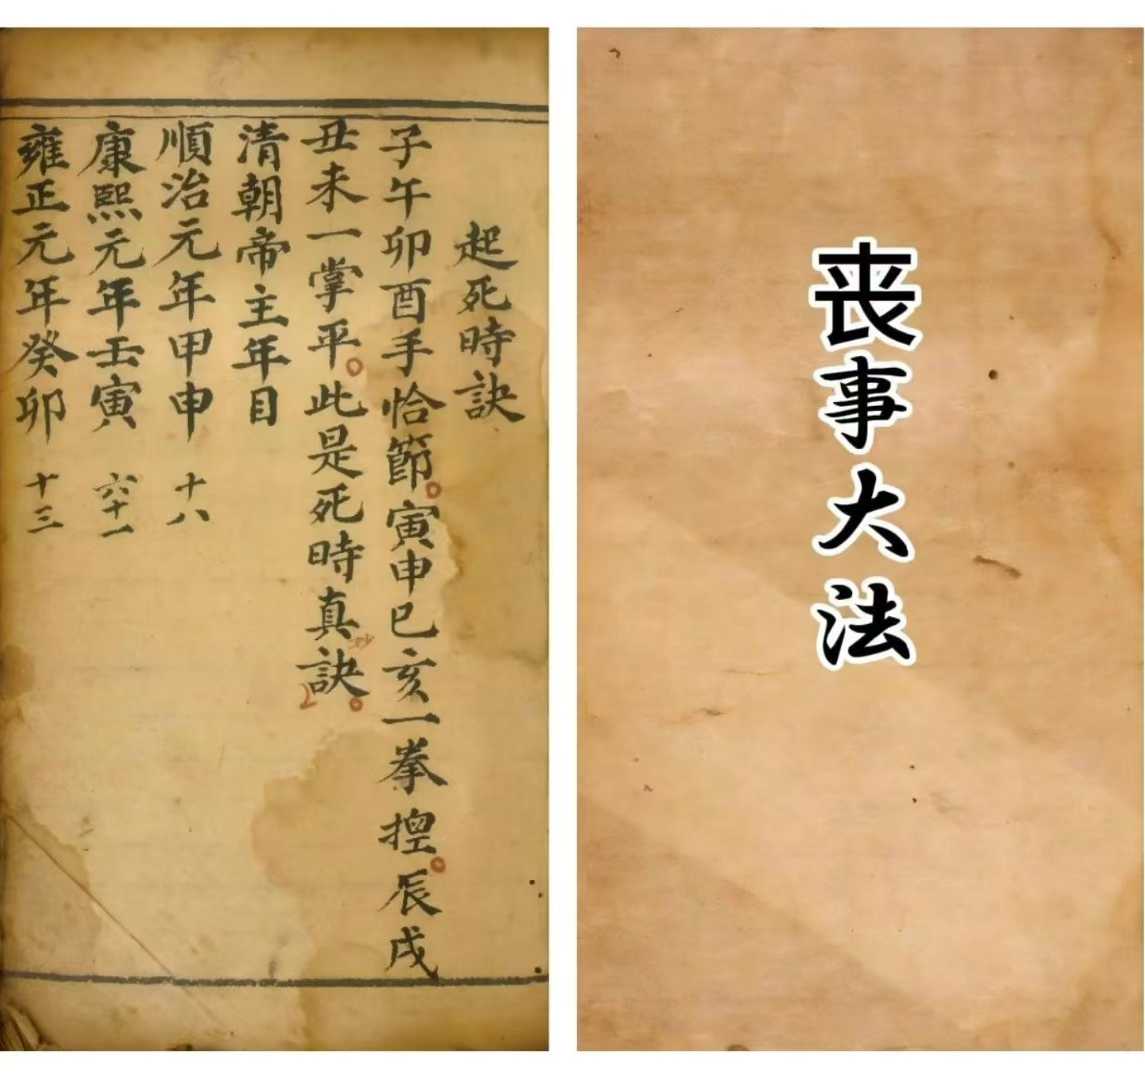 丧事大法
起死時訣
子午卯酉手恰節寅申巳亥一拳控辰戌
丑未一掌平此是死時真訣
清朝帝主年目
順治元年甲申 十八
康熙元年壬寅 六十一
雍正元年癸卯 十三